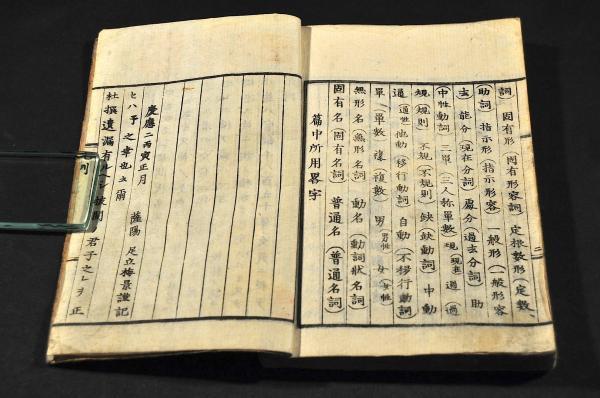 杜撰遺漏有ルヘシ 閲 君子之レヲ正
セハ予之幸也云爾
薩陽 足立梅景謹記
慶應二丙寅正月
篇中所用畧字
固有名(固有名詞) 普通名(普通名詞)
無形名(無形名詞) 動名(動詞状名詞)
單(單數) 複(複數) 男(男性) 女(女性)
通(通性) 他動(移行動詞) 自動(不移行動詞)
規(規則) 不規(不規則) 缺(缺動詞) 中動
(中性動詞) 三單(三人称單數) 現(現在) 過(過
去) 能分(現在分詞) 處分(過去分詞) 助
(助詞) 指示形(指示形容) 一般形(一般形容
詞) 固有形(固有形容詞) 定根数形(定数
二